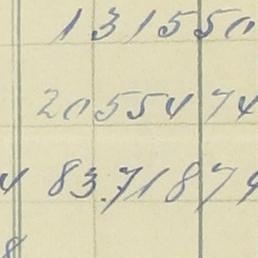 131550
2055474
4 83.71874
8